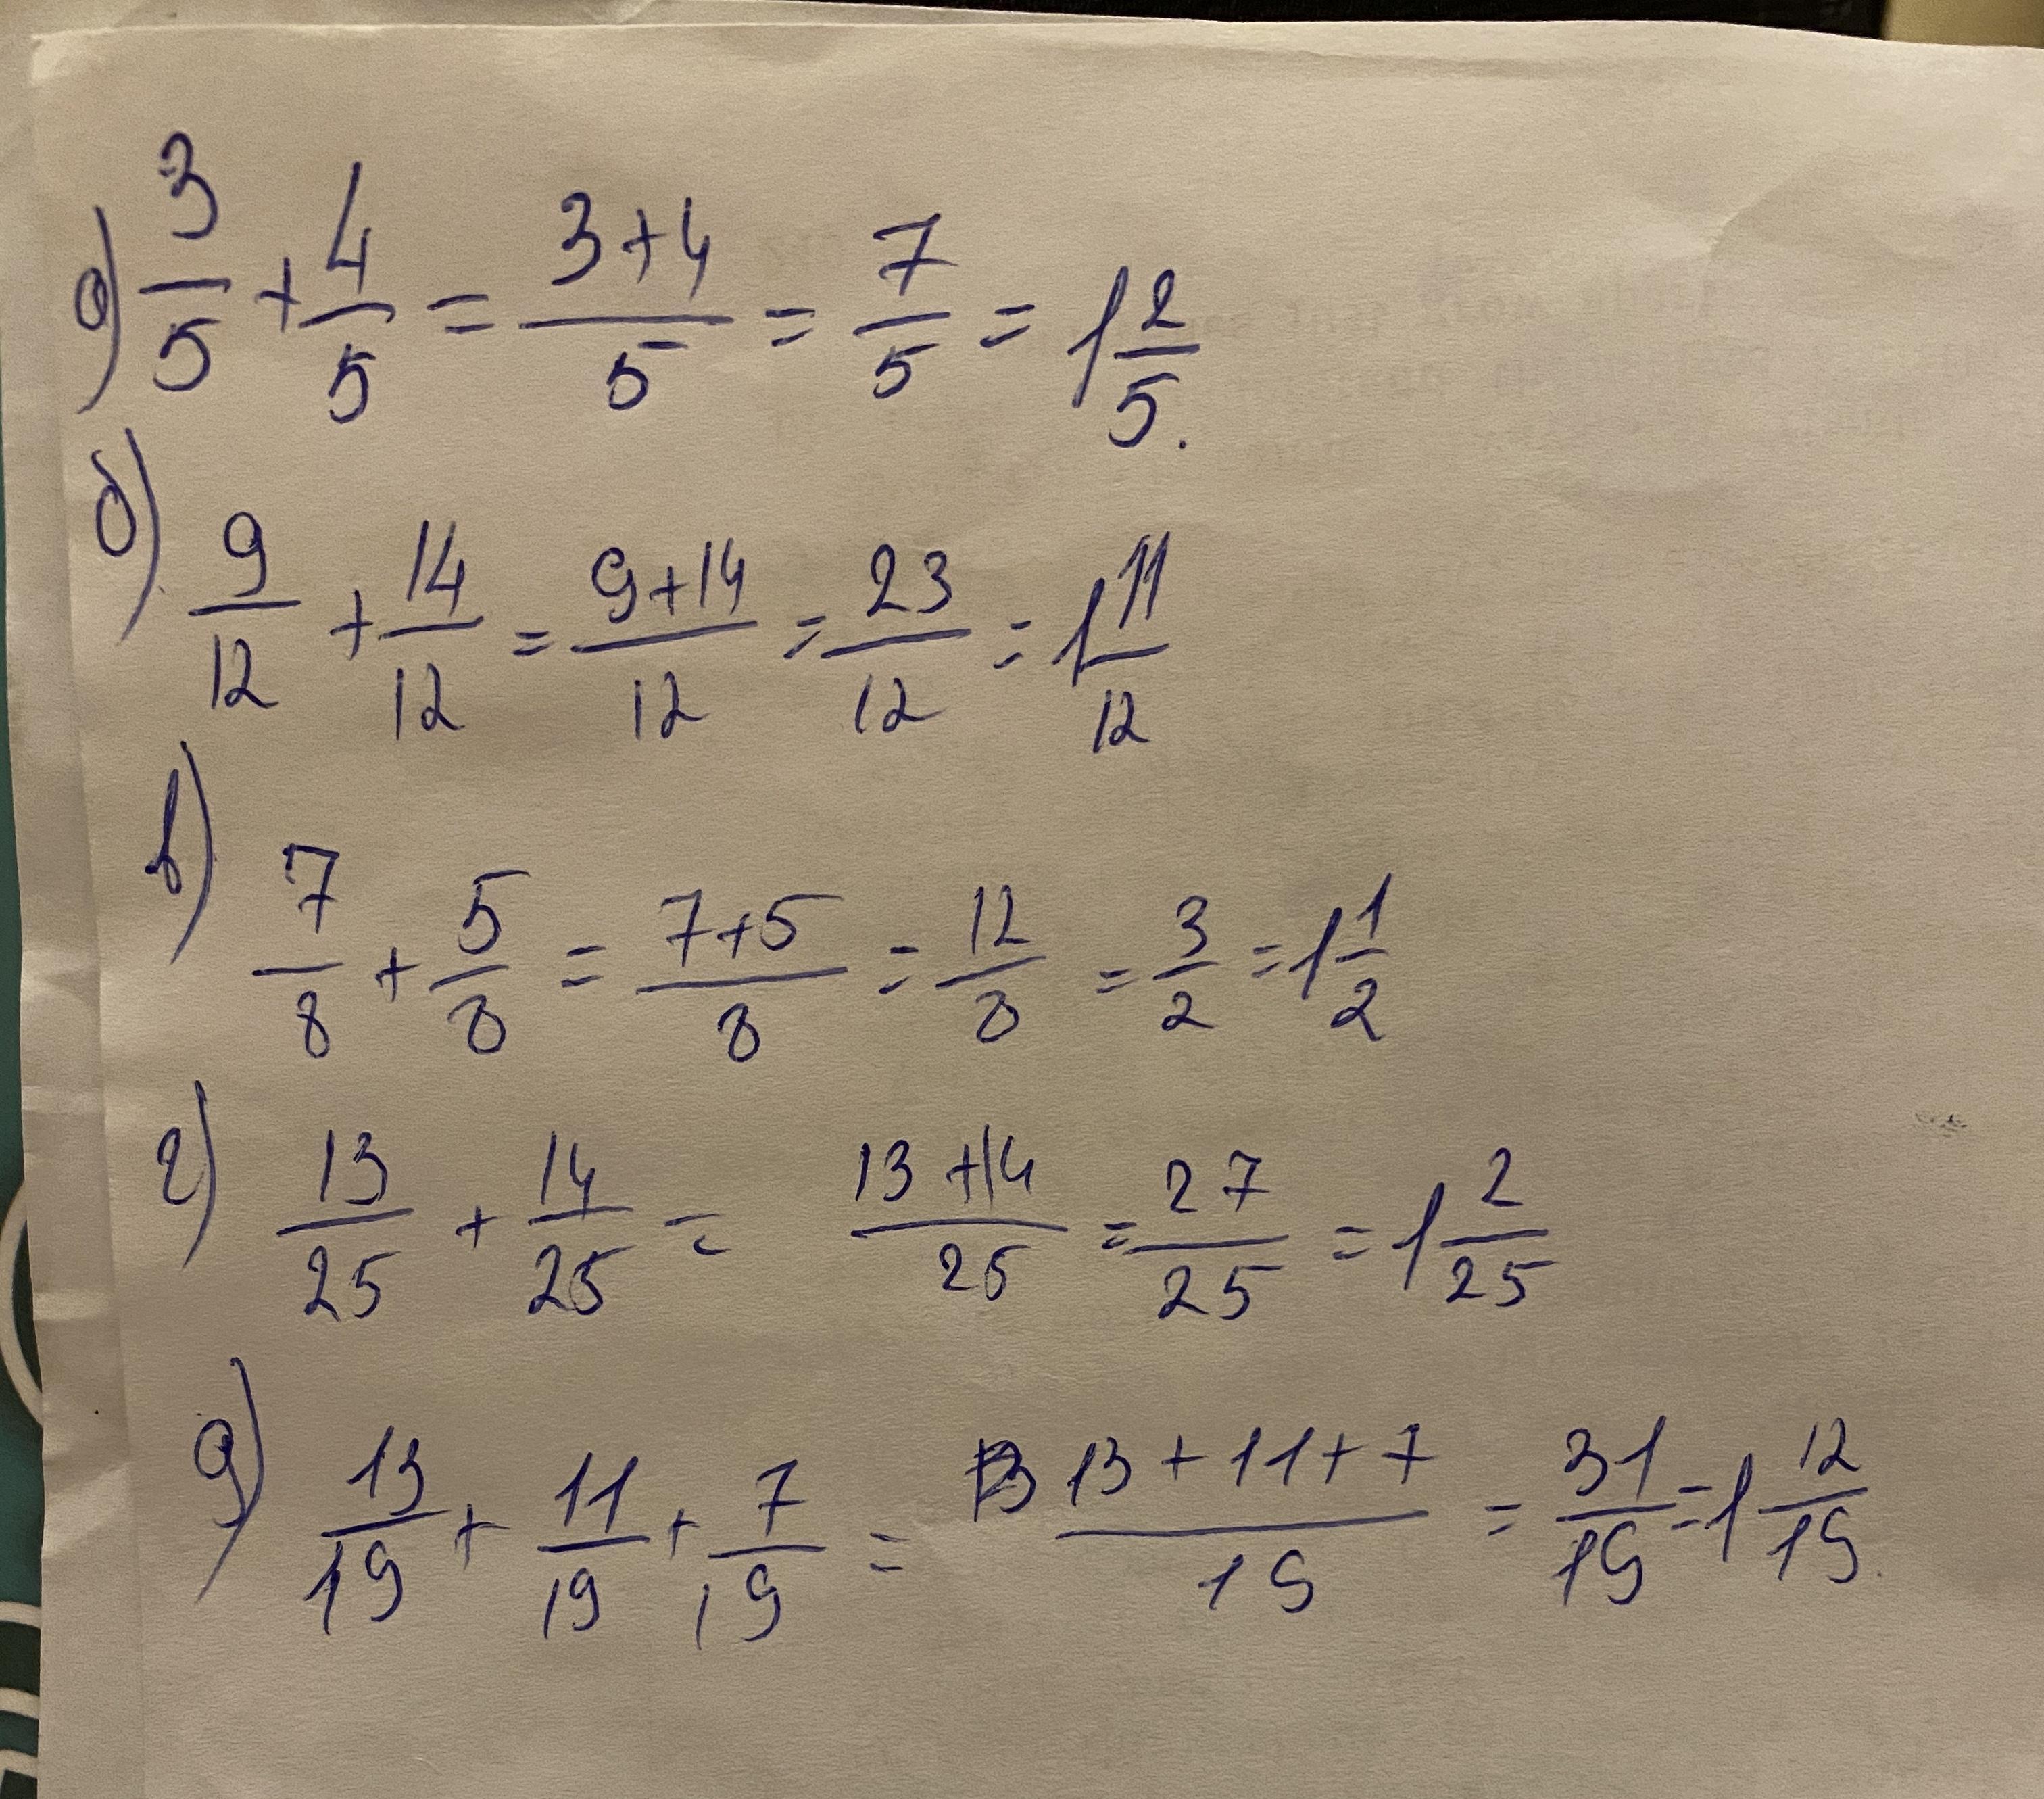 а) 3/5 + 4/5 = 3+4/5 = 7/5 = 1 2/5.
б) 9/12 + 14/12 = 9+14/12 = 23/12 = 1 11/12
в) 7/8 + 5/8 = 7+5/8 = 12/8 = 3/2 = 1 1/2
г) 13/25 + 14/25 = 13+14/25 = 27/25 = 1 2/25
д) 13/19 + 11/19 + 7/19 = 13+11+7/19 = 31/19 = 1 12/19.